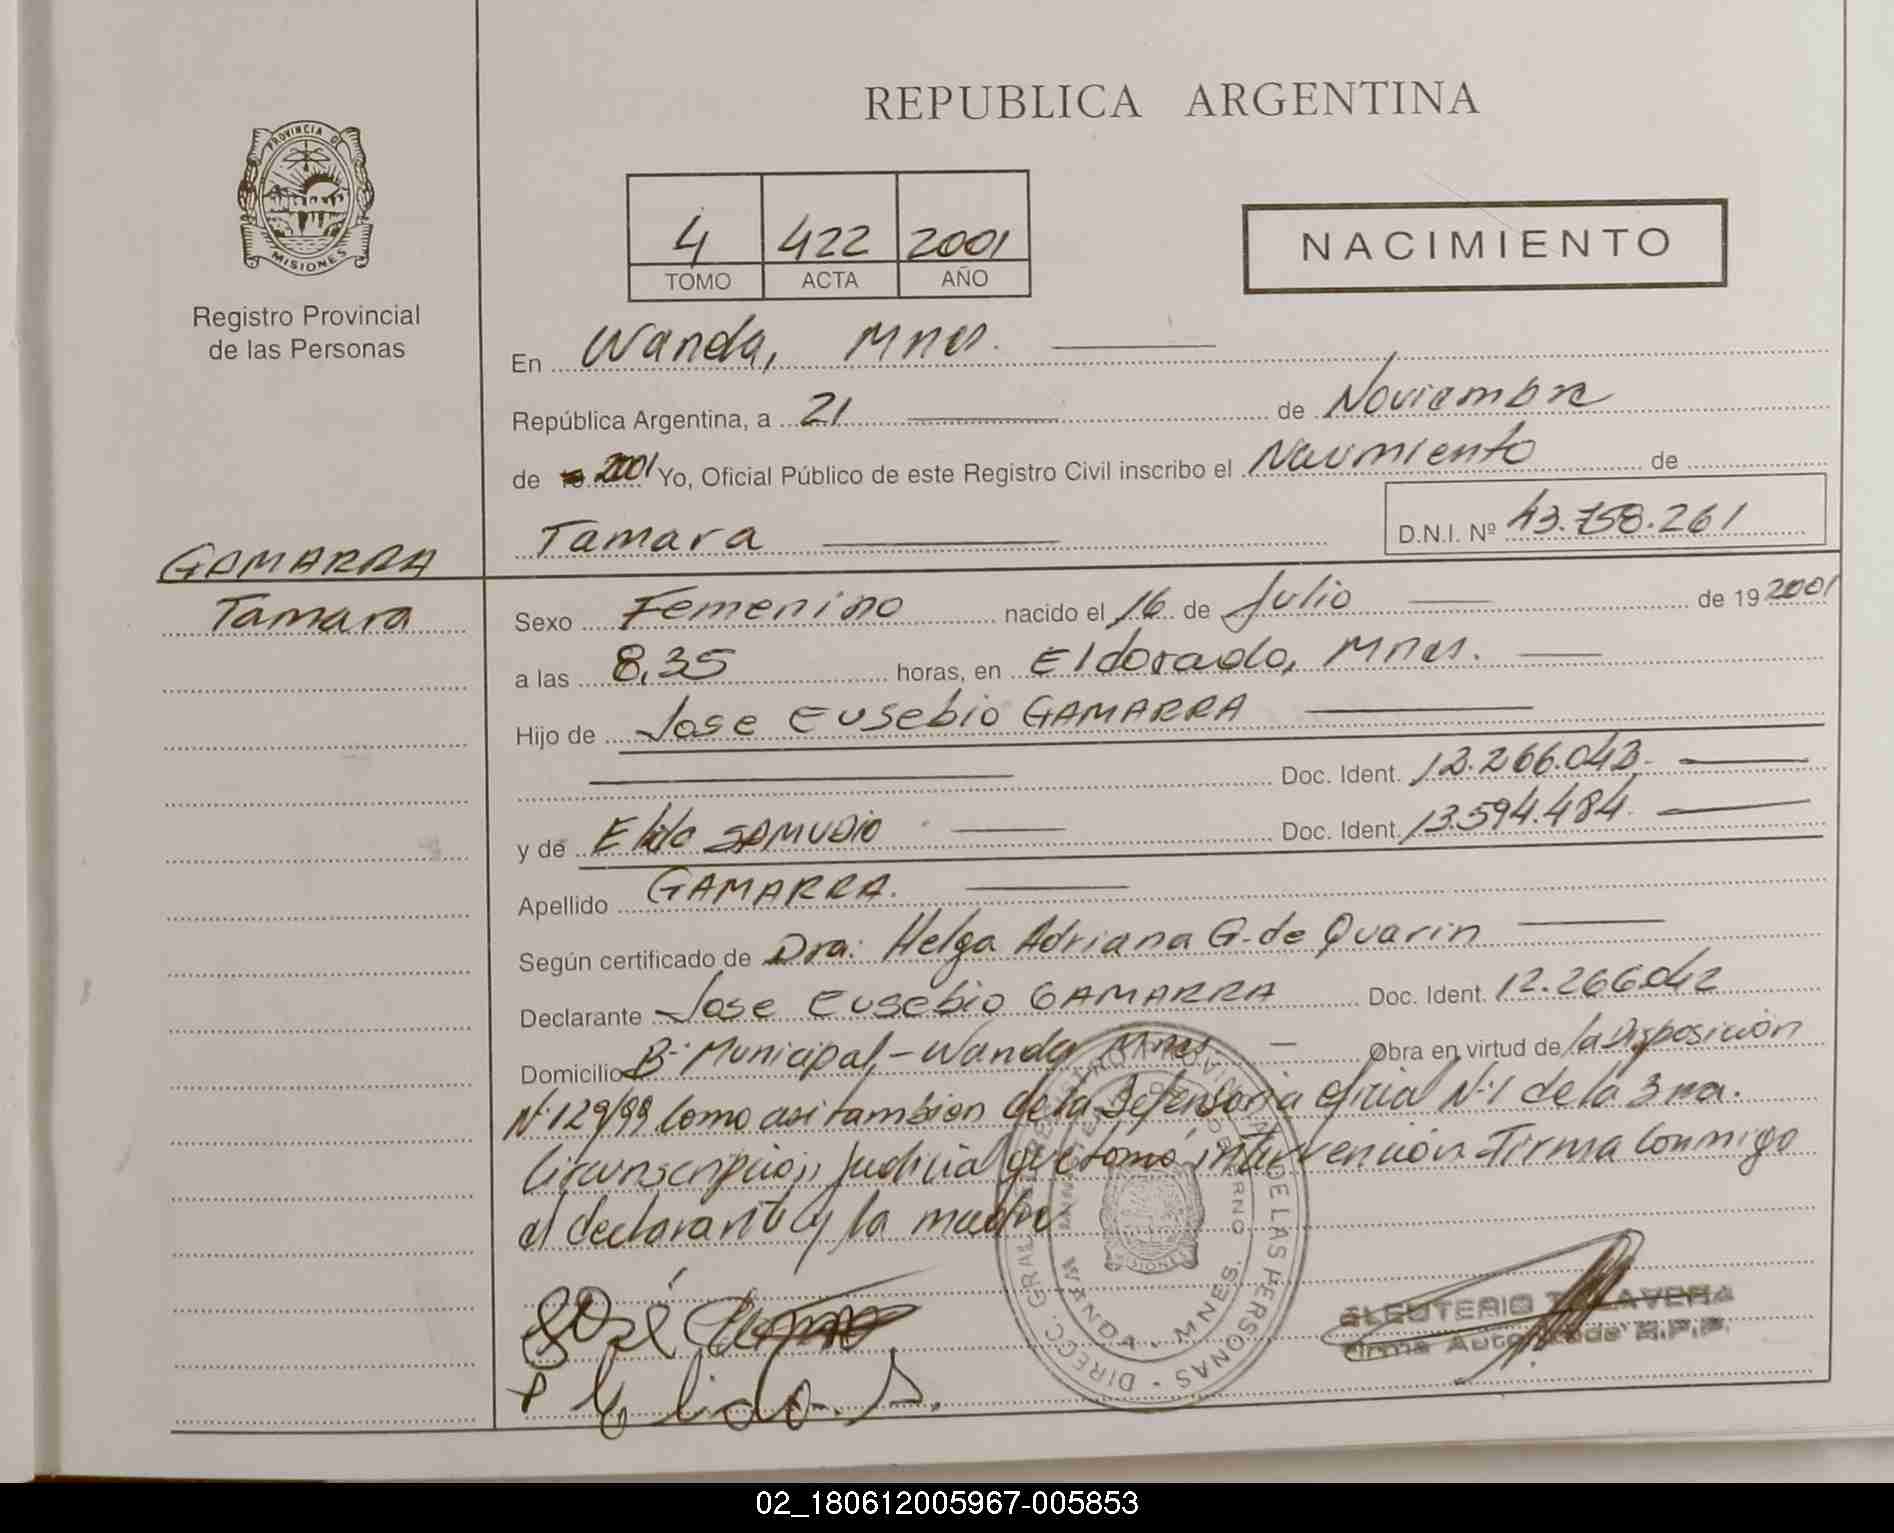 REPUBLICA ARGENTINA
PROVINCIA DE
MISIONES
Registro Provincial
de las Personas
4 422 2001
TOMO ACTA AÑO
NACIMIENTO
En Wanda, Mnes.
República Argentina, a 21 de Noviembre
de 2001 Yo, Oficial Público de este Registro Civil inscribo el Nacimiento de
Tamara D.N.I. Nº 43.758.261
GAMARRA
Tamara
Sexo Femenino nacido el 16 de Julio de 19 2001
a las 8,35 horas, en Eldorado, Mnes.
Hijo de Jose Eusebio GAMARRA
Doc. Ident.
y de SAMUDIO Doc. Ident. 13.594.484
Apellido GAMARRA.
Según certificado de Dra: Helga Adriana G. de Quarin
Declarante Jose Eusebio GAMARRA Doc. Ident. 12.266.042
Domicilio Bº Municipal - Wanda Mnes. Obra en virtud de la Disposición
Nº 129/99 como asi tambien de la Defensoria oficial Nº 1 de la 3ra.
Circunscripcion Judicial que tomó intervención. Firma conmigo
el declarante y la madre
DIRECC. GRAL. DE REGISTRO PROVINCIAL DE LAS PERSONAS
GOBIERNO
WANDA - MNES.
José
Elida. S.
ELEUTERIO TALAVERA
Firma Autorizada R.P.P.
02_180612005967-005853